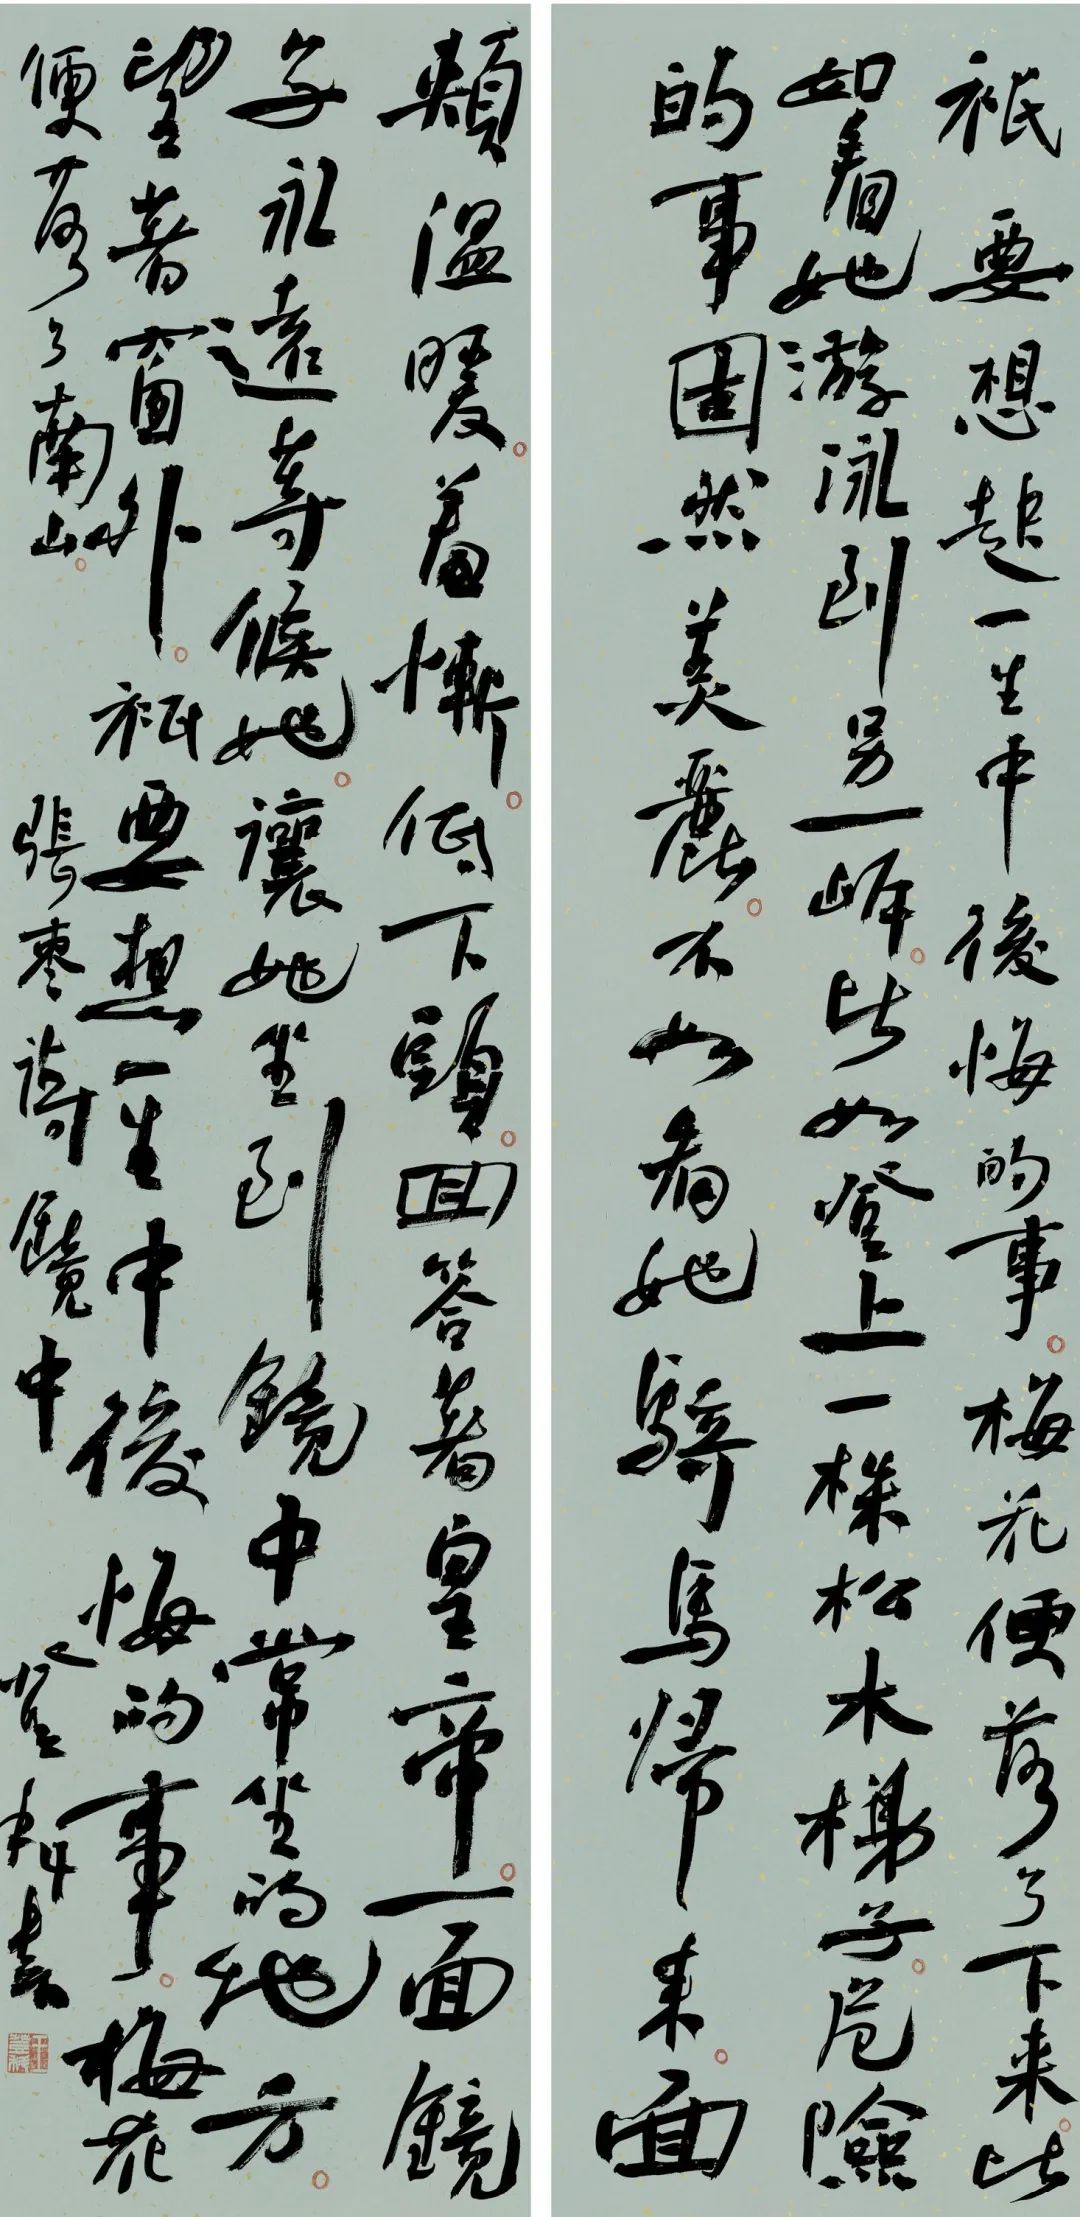 祇要想起一生中後悔的事梅花便落了下来比
如看她游泳到另一岸比如登上一株松木梯子危險
的事固然美麗不如看她騎馬歸来面
頰温暖羞慚低下頭回答着皇帝一面鏡
子永遠等候她讓她坐到鏡中常坐的地方
望着窗外祇要想一生中後悔的事梅花
便落了南山 張枣詩鏡中